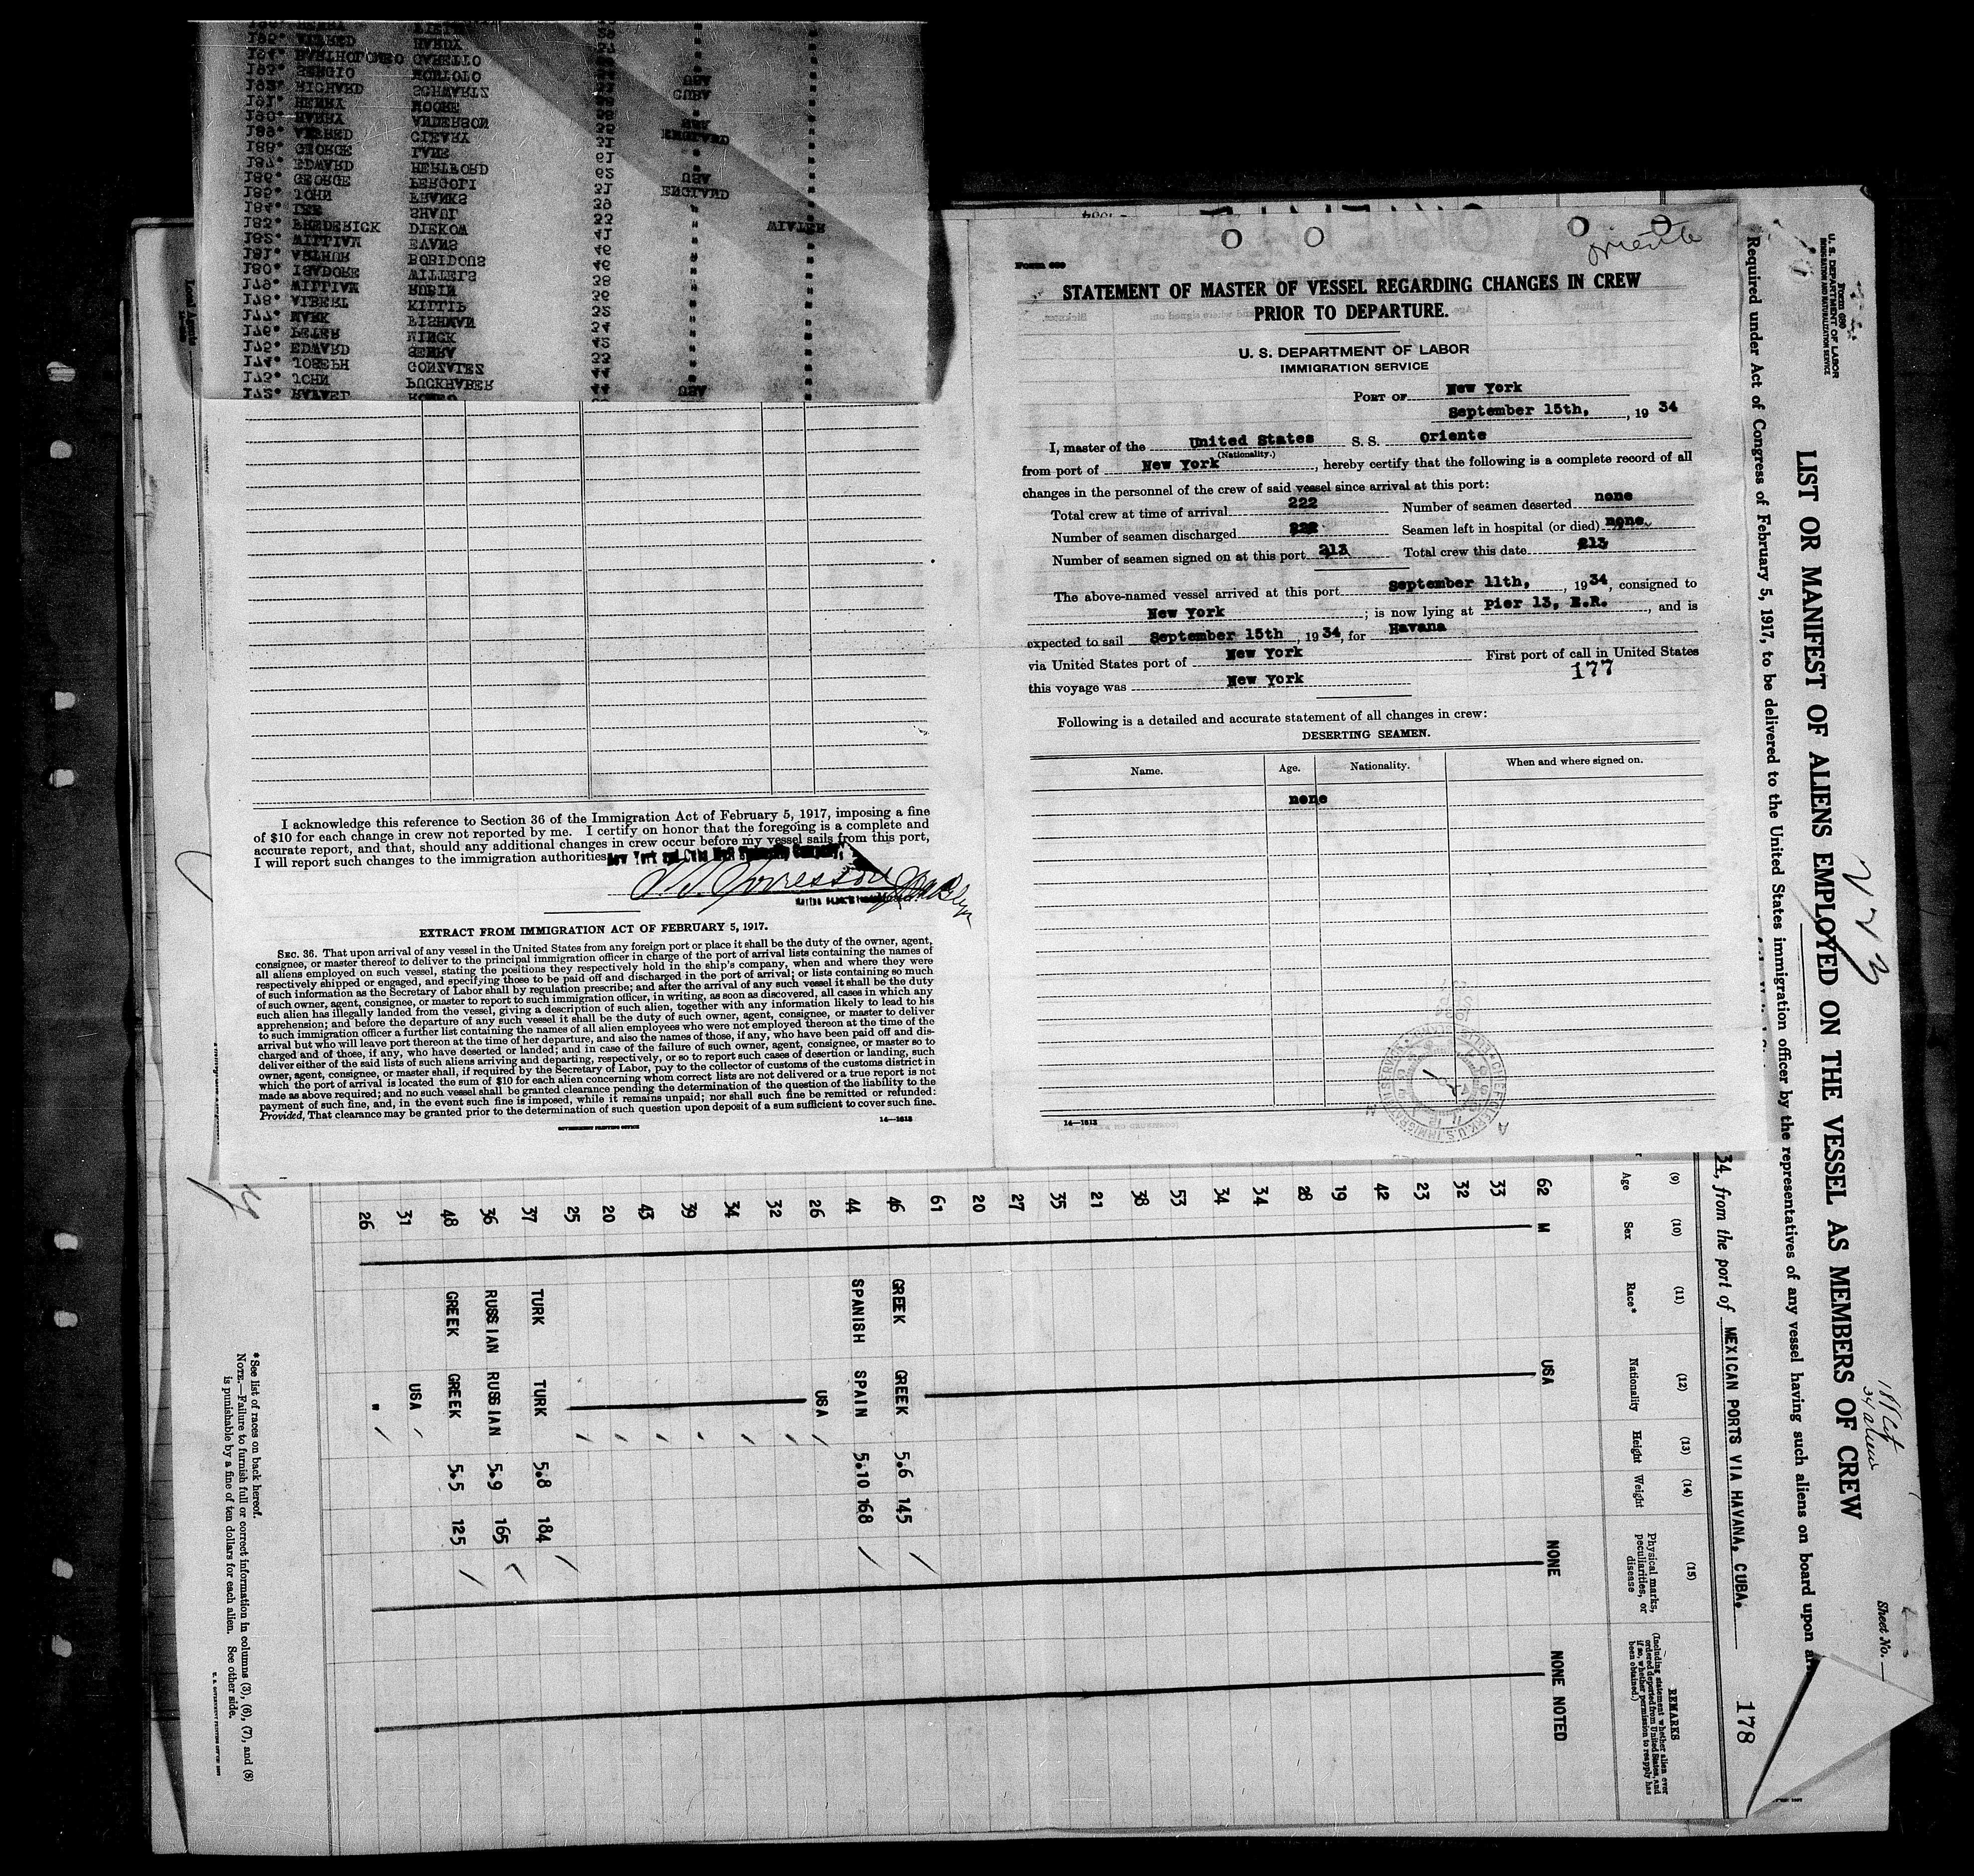 Oriente
Form 689
STATEMENT OF MASTER OF VESSEL REGARDING CHANGES IN CREW
PRIOR TO DEPARTURE.
U. S. DEPARTMENT OF LABOR
IMMIGRATION SERVICE
PORT OF New York
September 15th, , 19 34
I, master of the United States S. S. Oriente
(Nationality.)
from port of New York , hereby certify that the following is a complete record of all
changes in the personnel of the crew of said vessel since arrival at this port:
Total crew at time of arrival 222 Number of seamen deserted none
Number of seamen discharged 222 Seamen left in hospital (or died) none
Number of seamen signed on at this port 213 Total crew this date 213
The above-named vessel arrived at this port September 11th, , 19 34, consigned to
New York ; is now lying at Pier 13, E.R. , and is
expected to sail September 15th , 19 34, for Havana
via United States port of New York First port of call in United States
this voyage was New York
177
Following is a detailed and accurate statement of all changes in crew:
DESERTING SEAMEN.
Name. Age. Nationality. When and where signed on.
none
14—1613
I acknowledge this reference to Section 36 of the Immigration Act of February 5, 1917, imposing a fine
of $10 for each change in crew not reported by me. I certify on honor that the foregoing is a complete and
accurate report, and that, should any additional changes in crew occur before my vessel sails from this port,
I will report such changes to the immigration authorities.
New York and Cuba Mail Steamship Company
EXTRACT FROM IMMIGRATION ACT OF FEBRUARY 5, 1917.
SEC. 36. That upon arrival of any vessel in the United States from any foreign port or place it shall be the duty of the owner, agent,
consignee, or master thereof to deliver to the principal immigration officer in charge of the port of arrival lists containing the names of
all aliens employed on such vessel, stating the positions they respectively hold in the ship's company, when and where they were
respectively shipped or engaged, and specifying those to be paid off and discharged in the port of arrival; or lists containing so much
of such information as the Secretary of Labor shall by regulation prescribe; and after the arrival of any such vessel it shall be the duty
of such owner, agent, consignee, or master to report to such immigration officer, in writing, as soon as discovered, all cases in which any
such alien has illegally landed from the vessel, giving a description of such alien, together with any information likely to lead to his
apprehension; and before the departure of any such vessel it shall be the duty of such owner, agent, consignee, or master to deliver
to such immigration officer a further list containing the names of all alien employees who were not employed thereon at the time of the
arrival but who will leave port thereon at the time of her departure, and also the names of those, if any, who have been paid off and dis-
charged and of those, if any, who have deserted or landed; and in case of the failure of such owner, agent, consignee, or master so to
deliver either of the said lists of such aliens arriving and departing, respectively, or so to report such cases of desertion or landing, such
owner, agent, consignee, or master shall, if required by the Secretary of Labor, pay to the collector of customs of the customs district in
which the port of arrival is located the sum of $10 for each alien concerning whom correct lists are not delivered or a true report is not
made as above required; and no such vessel shall be granted clearance pending the determination of the question of the liability to the
payment of such fine, and, in the event such fine is imposed, while it remains unpaid; nor shall such fine be remitted or refunded:
Provided, That clearance may be granted prior to the determination of such question upon deposit of a sum sufficient to cover such fine.
GOVERNMENT PRINTING OFFICE 14—1613
Form 680
U. S. DEPARTMENT OF LABOR
IMMIGRATION AND NATURALIZATION SERVICE
Sheet No.
LIST OR MANIFEST OF ALIENS EMPLOYED ON THE VESSEL AS MEMBERS OF CREW
Required under Act of Congress of February 5, 1917, to be delivered to the United States immigration officer by the representatives of any vessel having such aliens on board upon
34, from the port of MEXICAN PORTS VIA HAVANA, CUBA.
178
(9) (10) (11) (12) (13) (14) (15)
Age Sex Race* Nationality Height Weight Physical marks, peculiarities, or disease REMARKS
(Including statement whether alien ever ordered deported from United States, and if so, whether permission to reapply has been obtained.)
62 M USA NONE NONE NOTED
33
32
23
42
19
28
34
34
53
38
21
35
27
20
61
46 GREEK GREEK 5.6 145
44 SPANISH SPAIN 5.10 168
26 USA
32
34
39
43
20
25
37 TURK TURK 5.8 184
36 RUSSIAN RUSSIAN 5.9 165
48 GREEK GREEK 5.5 125
31 USA
26 "
* See list of races on back hereof.
NOTE.—Failure to furnish full or correct information in columns (3), (6), (7), and (8)
is punishable by a fine of ten dollars for each alien. See other side.
172* 
173* JOHN PUCKHABER 44
174* JOSEPH GONZALEZ 44
175* EDWARD SERRA 33
176* PETER 42
177* MARK FISHMAN 34
178* ALBERT 32
179* WILLIAM RUBIN 36
180* ISADORE WILLETS 38
181* ARTHUR 46
182* WILLIAM EVANS 46
183* FREDERICK DIEKOW 41
184* LEE SHAUL 33
185* JOHN FRANKS 39
186* GEORGE PERGOLI 31 ENGLAND
187* EDWARD 62 USA
188* GEORGE LANE 61
189* CLEARY 31 ENGLAND
190* HARRY ANDERSON
191* HENRY MOORE
192* RICHARD SCHWARTZ CUBA
193* SERGIO USA